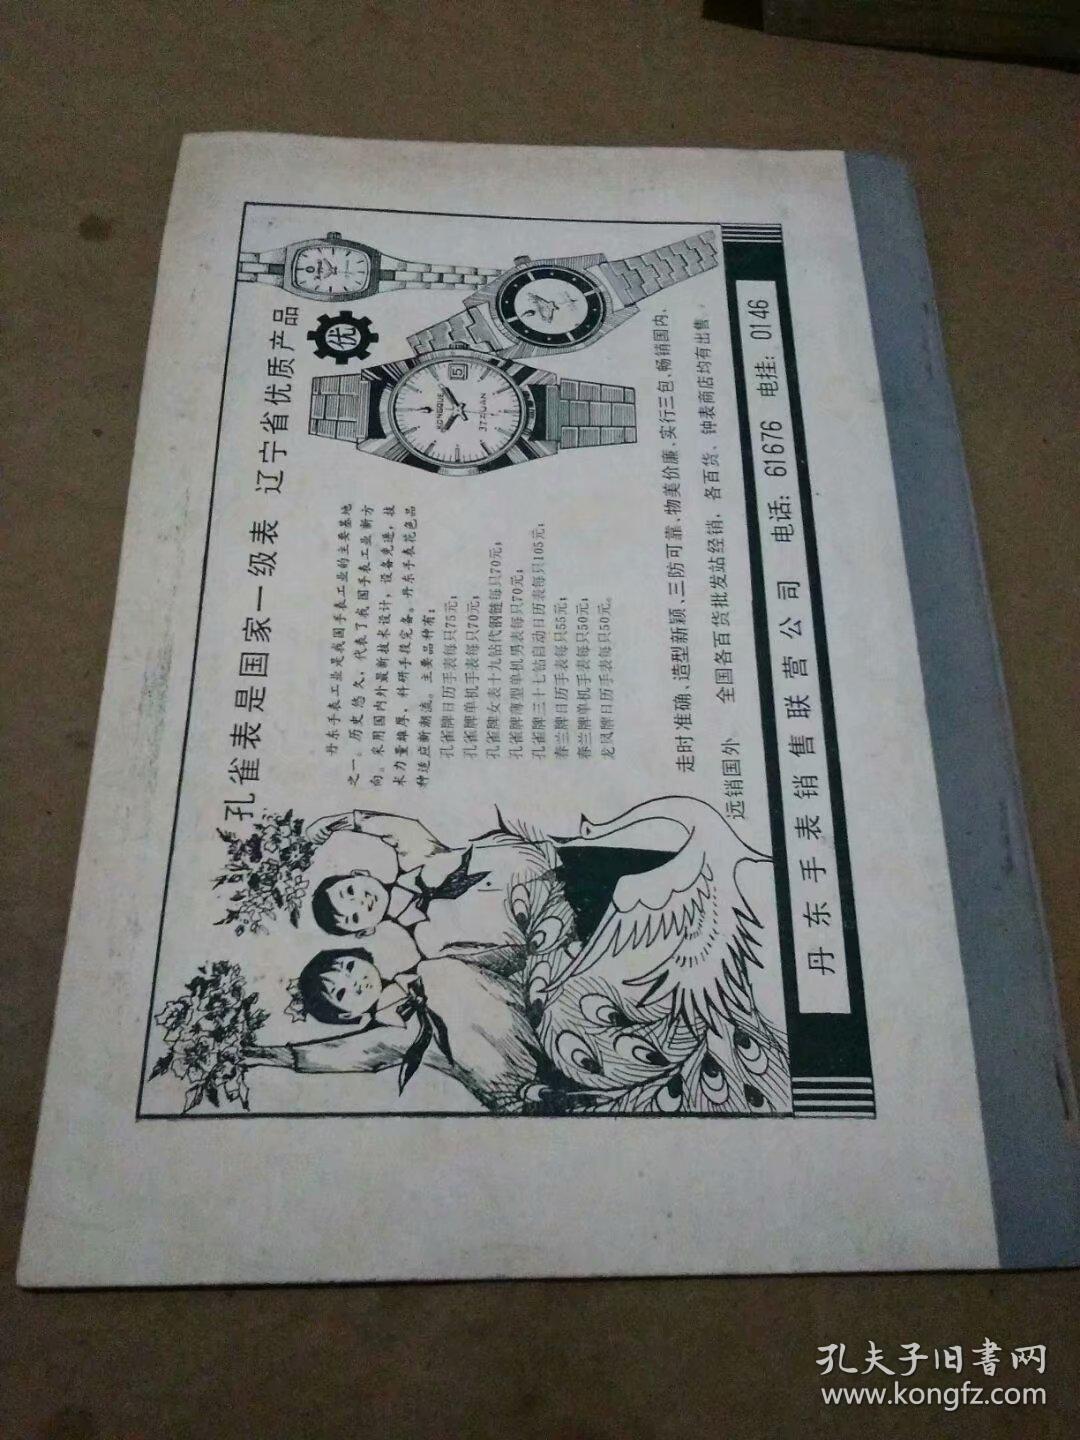 孔雀表是国家一级表 辽宁省优质产品
优
KONGQUE
5
37ZUAN
丹东手表工业是我国手表工业的主要基地
之一。历史悠久，代表了我国手表工业新方
向。采用国内外最新技术设计，设备先进，技
术力量雄厚，科研手段完备。丹东手表花色品
种适应新潮流。主要品种有：
孔雀牌日历手表每只75元；
孔雀牌单机手表每只70元；
孔雀牌女表十九钻代钢链每只70元；
孔雀牌薄型单机男表每只70元；
孔雀牌三十七钻自动日历表每只105元；
春兰牌日历手表每只55元；
春兰牌单机手表每只50元；
龙凤牌日历手表每只50元。
走时准确、造型新颖、三防可靠、物美价廉、实行三包、畅销国内、
远销国外 全国各百货批发站经销，各百货、钟表商店均有出售。
丹东手表销售联营公司 电话：61676 电挂：0146
孔夫子旧書网
www.kongfz.com